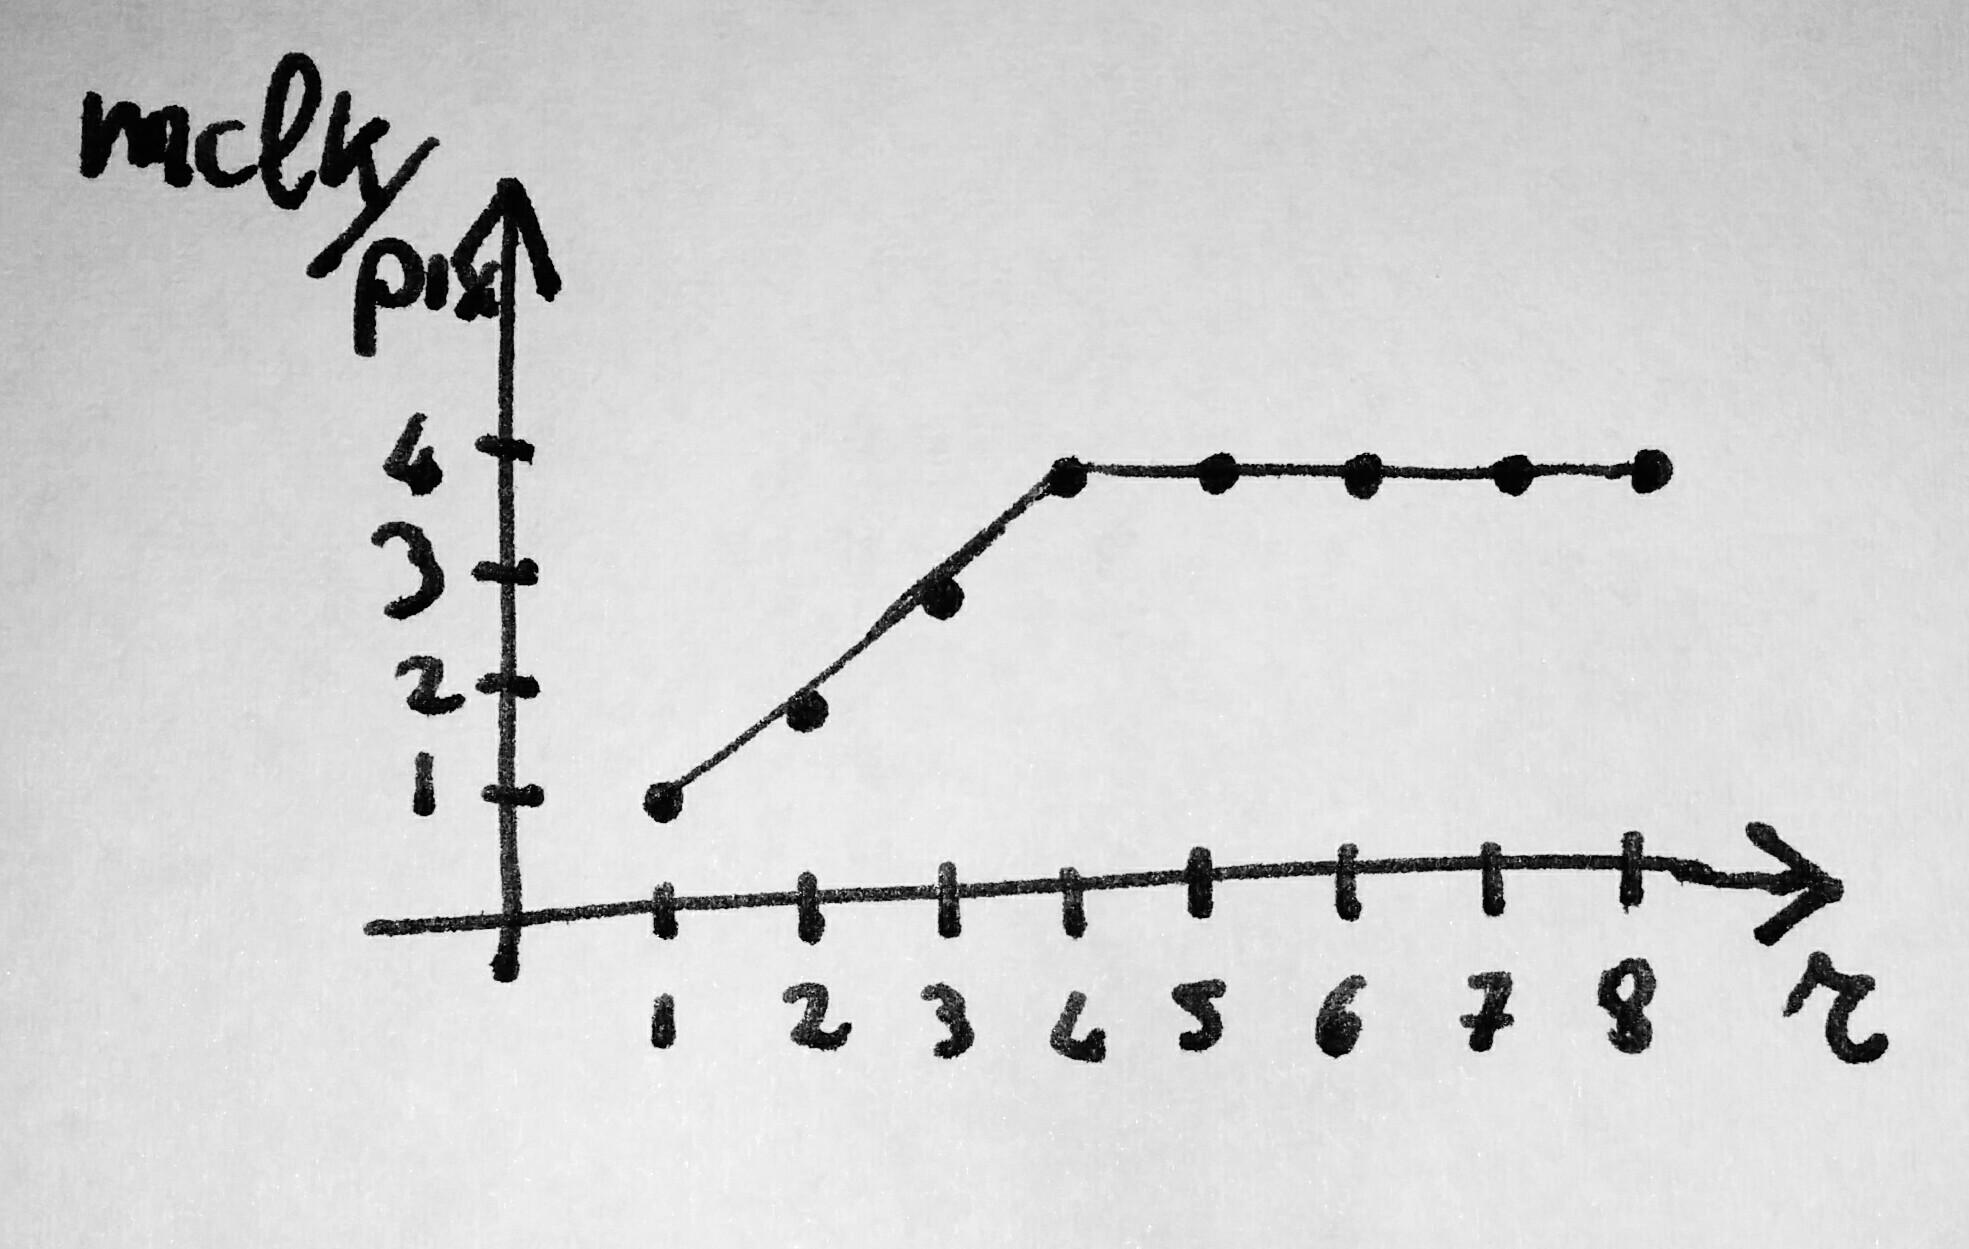 mclk/
pix
4
3
2
1
1 2 3 4 5 6 7 8 r